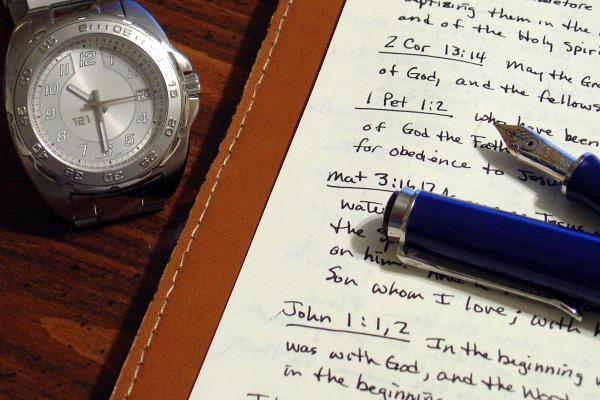 baptizing them in the
and of the Holy Spiri
2 Cor 13:14 May the Gra
of God, and the fellows
1 Pet 1:2 who have been
of God the Fath
for obedience to Jesus
Mat 3:16,17 Jesus
wate
the Sp
on him.
Son whom I love; with h
John 1:1,2 In the beginning
was with God, and the Word
in the beginning
12 1 2 4 5 7 8 9 10 11
121